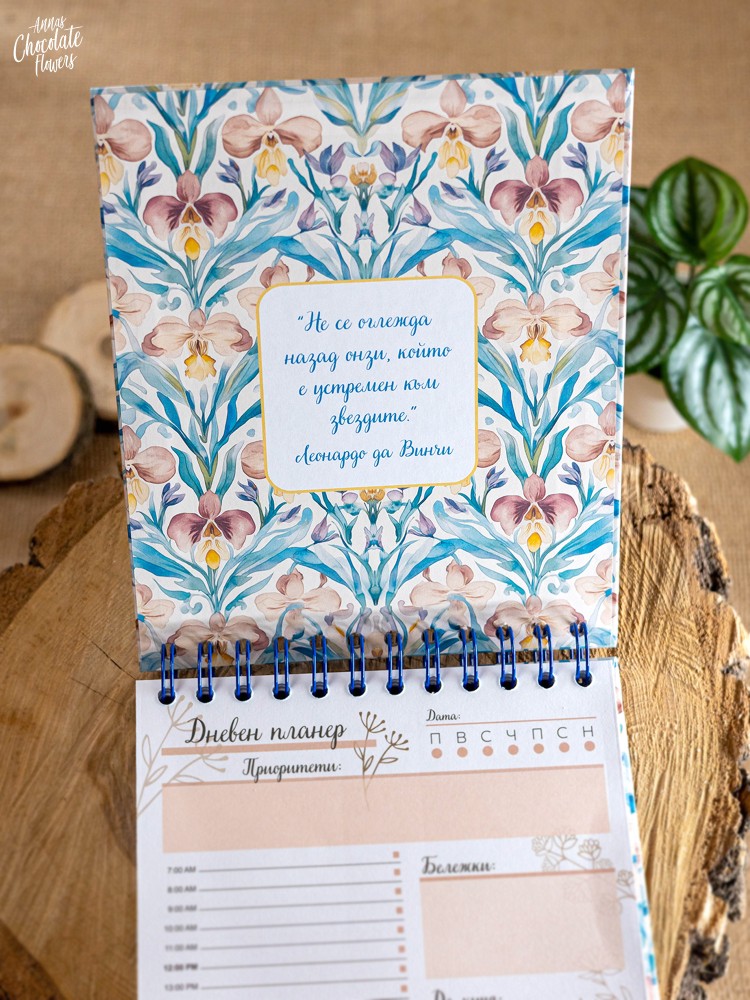 Annas
Chocolate
Flowers
"Не се оглежда
назад онзи, който
е устремен към
звездите."
Леонардо да Винчи
Дневен планер
Дата:
П В С Ч П С Н
Приоритети:
7:00 AM
8:00 AM
9:00 AM
10:00 AM
11:00 AM
12:00 PM
13:00 PM
Бележки: